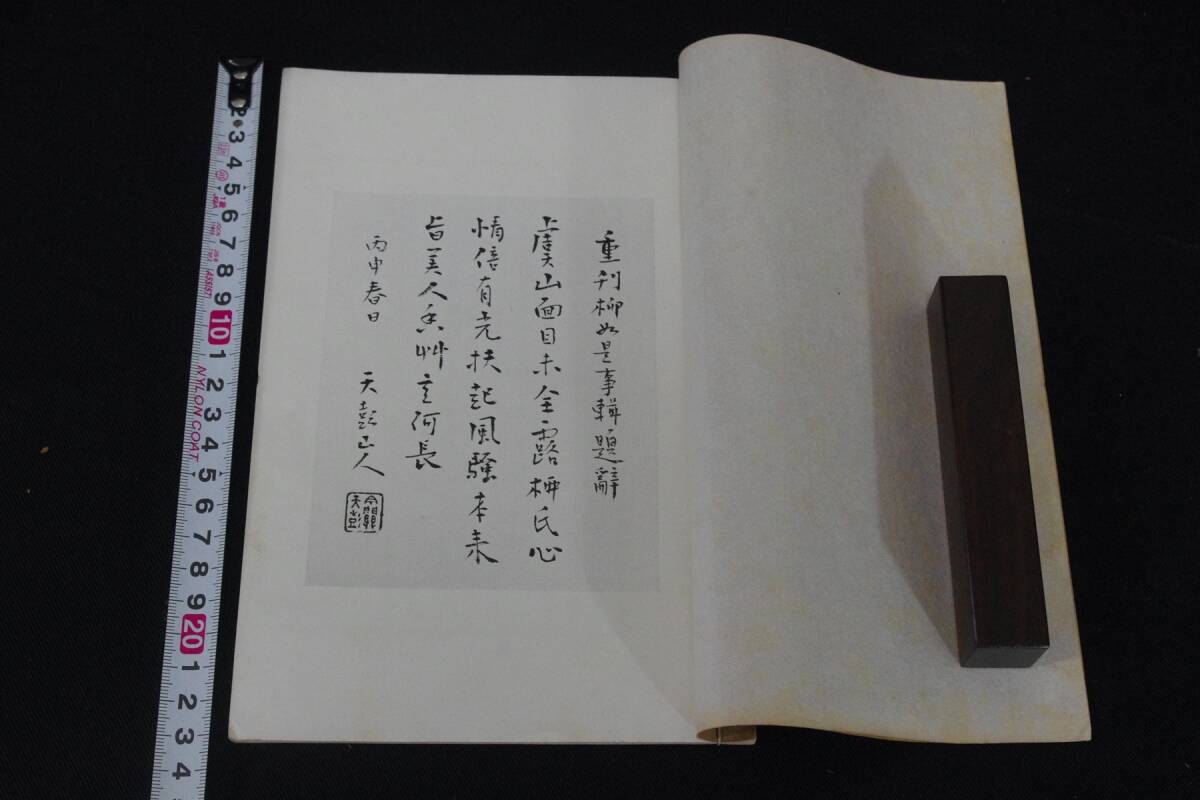 重刊柳如是事輯題辭
虞山面目未全露柳氏心
情倍有光扶起風騷本来
旨美人香艸何長
丙申春日 天彭山人
今關天彭
2 3 4 5 6 7 8 9 10 1 2 3 4 5 6 7 8 9 20 1 2 3 4
ASSIST
NYLON COAT